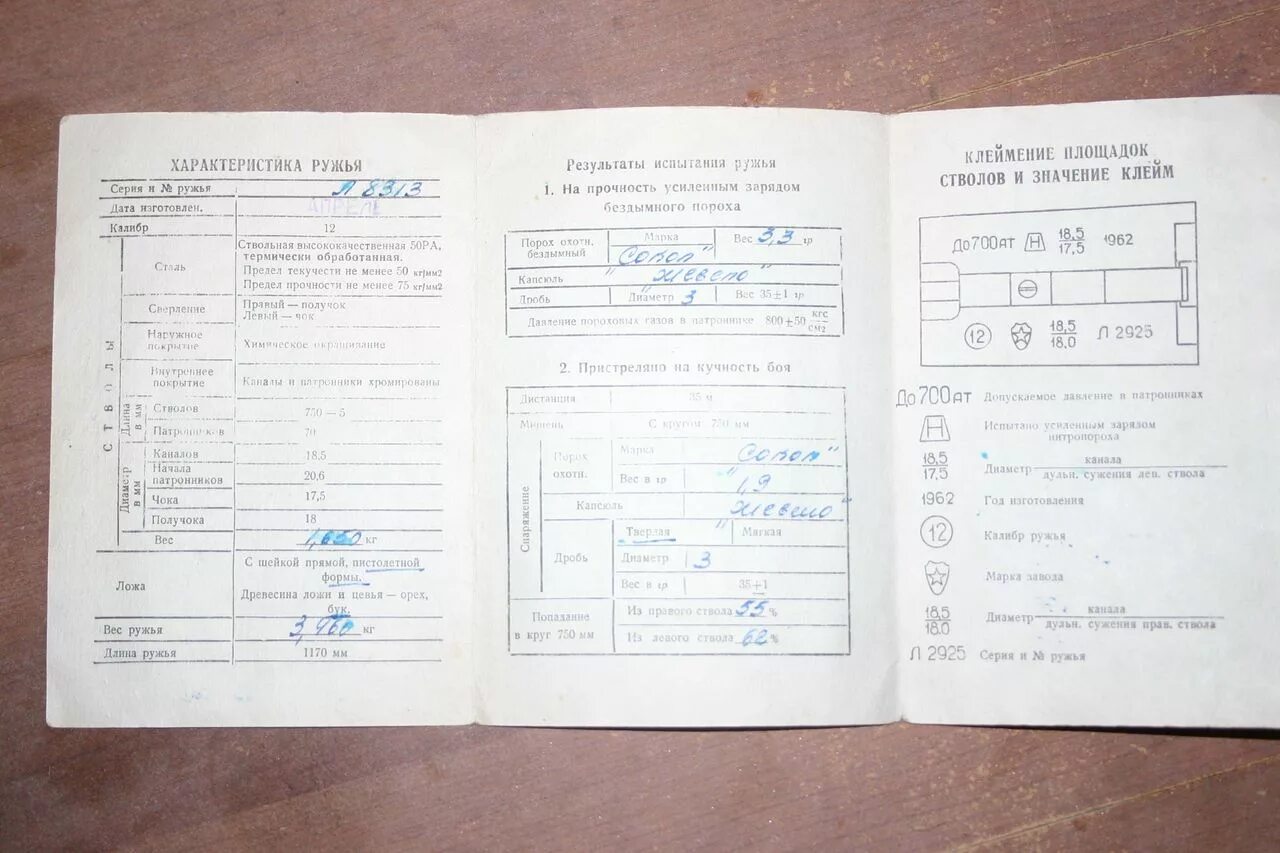 ХАРАКТЕРИСТИКА РУЖЬЯ
Серия и № ружья Л 8313
Дата изготовлен. АПРЕЛЬ
Калибр 12
СТВОЛЫ
Сталь
Ствольная высококачественная 50РА,
термически обработанная.
Предел текучести не менее 50 кг/мм2
Предел прочности не менее 75 кг/мм2
Сверление
Правый — получок
Левый — чок
Наружное покрытие
Химическое окрашивание
Внутреннее покрытие
Каналы и патронники хромированы
Длина в мм
Стволов 750 — 5
Патронников 70
Диаметр в мм
Каналов 18,5
Начала патронников 20,6
Чока 17,5
Получока 18
Вес 1,650 кг
Ложа
С шейкой прямой, пистолетной
формы.
Древесина ложи и цевья — орех,
бук.
Вес ружья 3,460 кг
Длина ружья 1170 мм
Результаты испытания ружья
1. На прочность усиленным зарядом
бездымного пороха
Порох охотн. бездымный
Марка "Сокол"
Вес 3,3 гр
Капсюль "Жевело"
Дробь Диаметр 3 Вес 35±1 гр
Давление пороховых газов в патроннике 800±50 кгс/см2
2. Пристреляно на кучность боя
Дистанция 35 м
Мишень С кругом 750 мм
Снаряжение
Порох охотн.
Марка "Сокол"
Вес в гр 1,9
Капсюль "Жевело"
Дробь
Твердая Мягкая
Диаметр 3
Вес в гр 35±1
Попадание
в круг 750 мм
Из правого ствола 55%
Из левого ствола 62%
КЛЕЙМЕНИЕ ПЛОЩАДОК
СТВОЛОВ И ЗНАЧЕНИЕ КЛЕЙМ
До700ат Н 18,5 1962
17,5
12 18,5 Л 2925
18,0
До700ат Допускаемое давление в патронниках
Н Испытано усиленным зарядом
нитропороха
18,5 Диаметр канала
17,5 дульн. сужения лев. ствола
1962 Год изготовления
12 Калибр ружья
Марка завода
18,5 Диаметр канала
18,0 дульн. сужения прав. ствола
Л 2925 Серия и № ружья